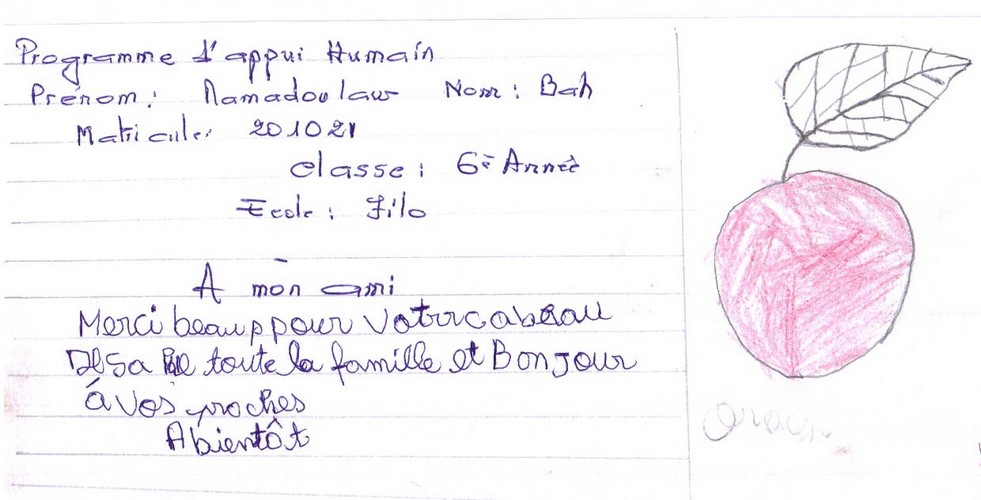 Programme d'appui Humain
Prénom: Mamadou laur Nom: Bah
Matricule: 201021
classe: 6è Année
Ecole: Filo
A mon ami
Merci beaup pour Votrcabeau
toute la famille et Bonjour
á Vos proches
Abientôt